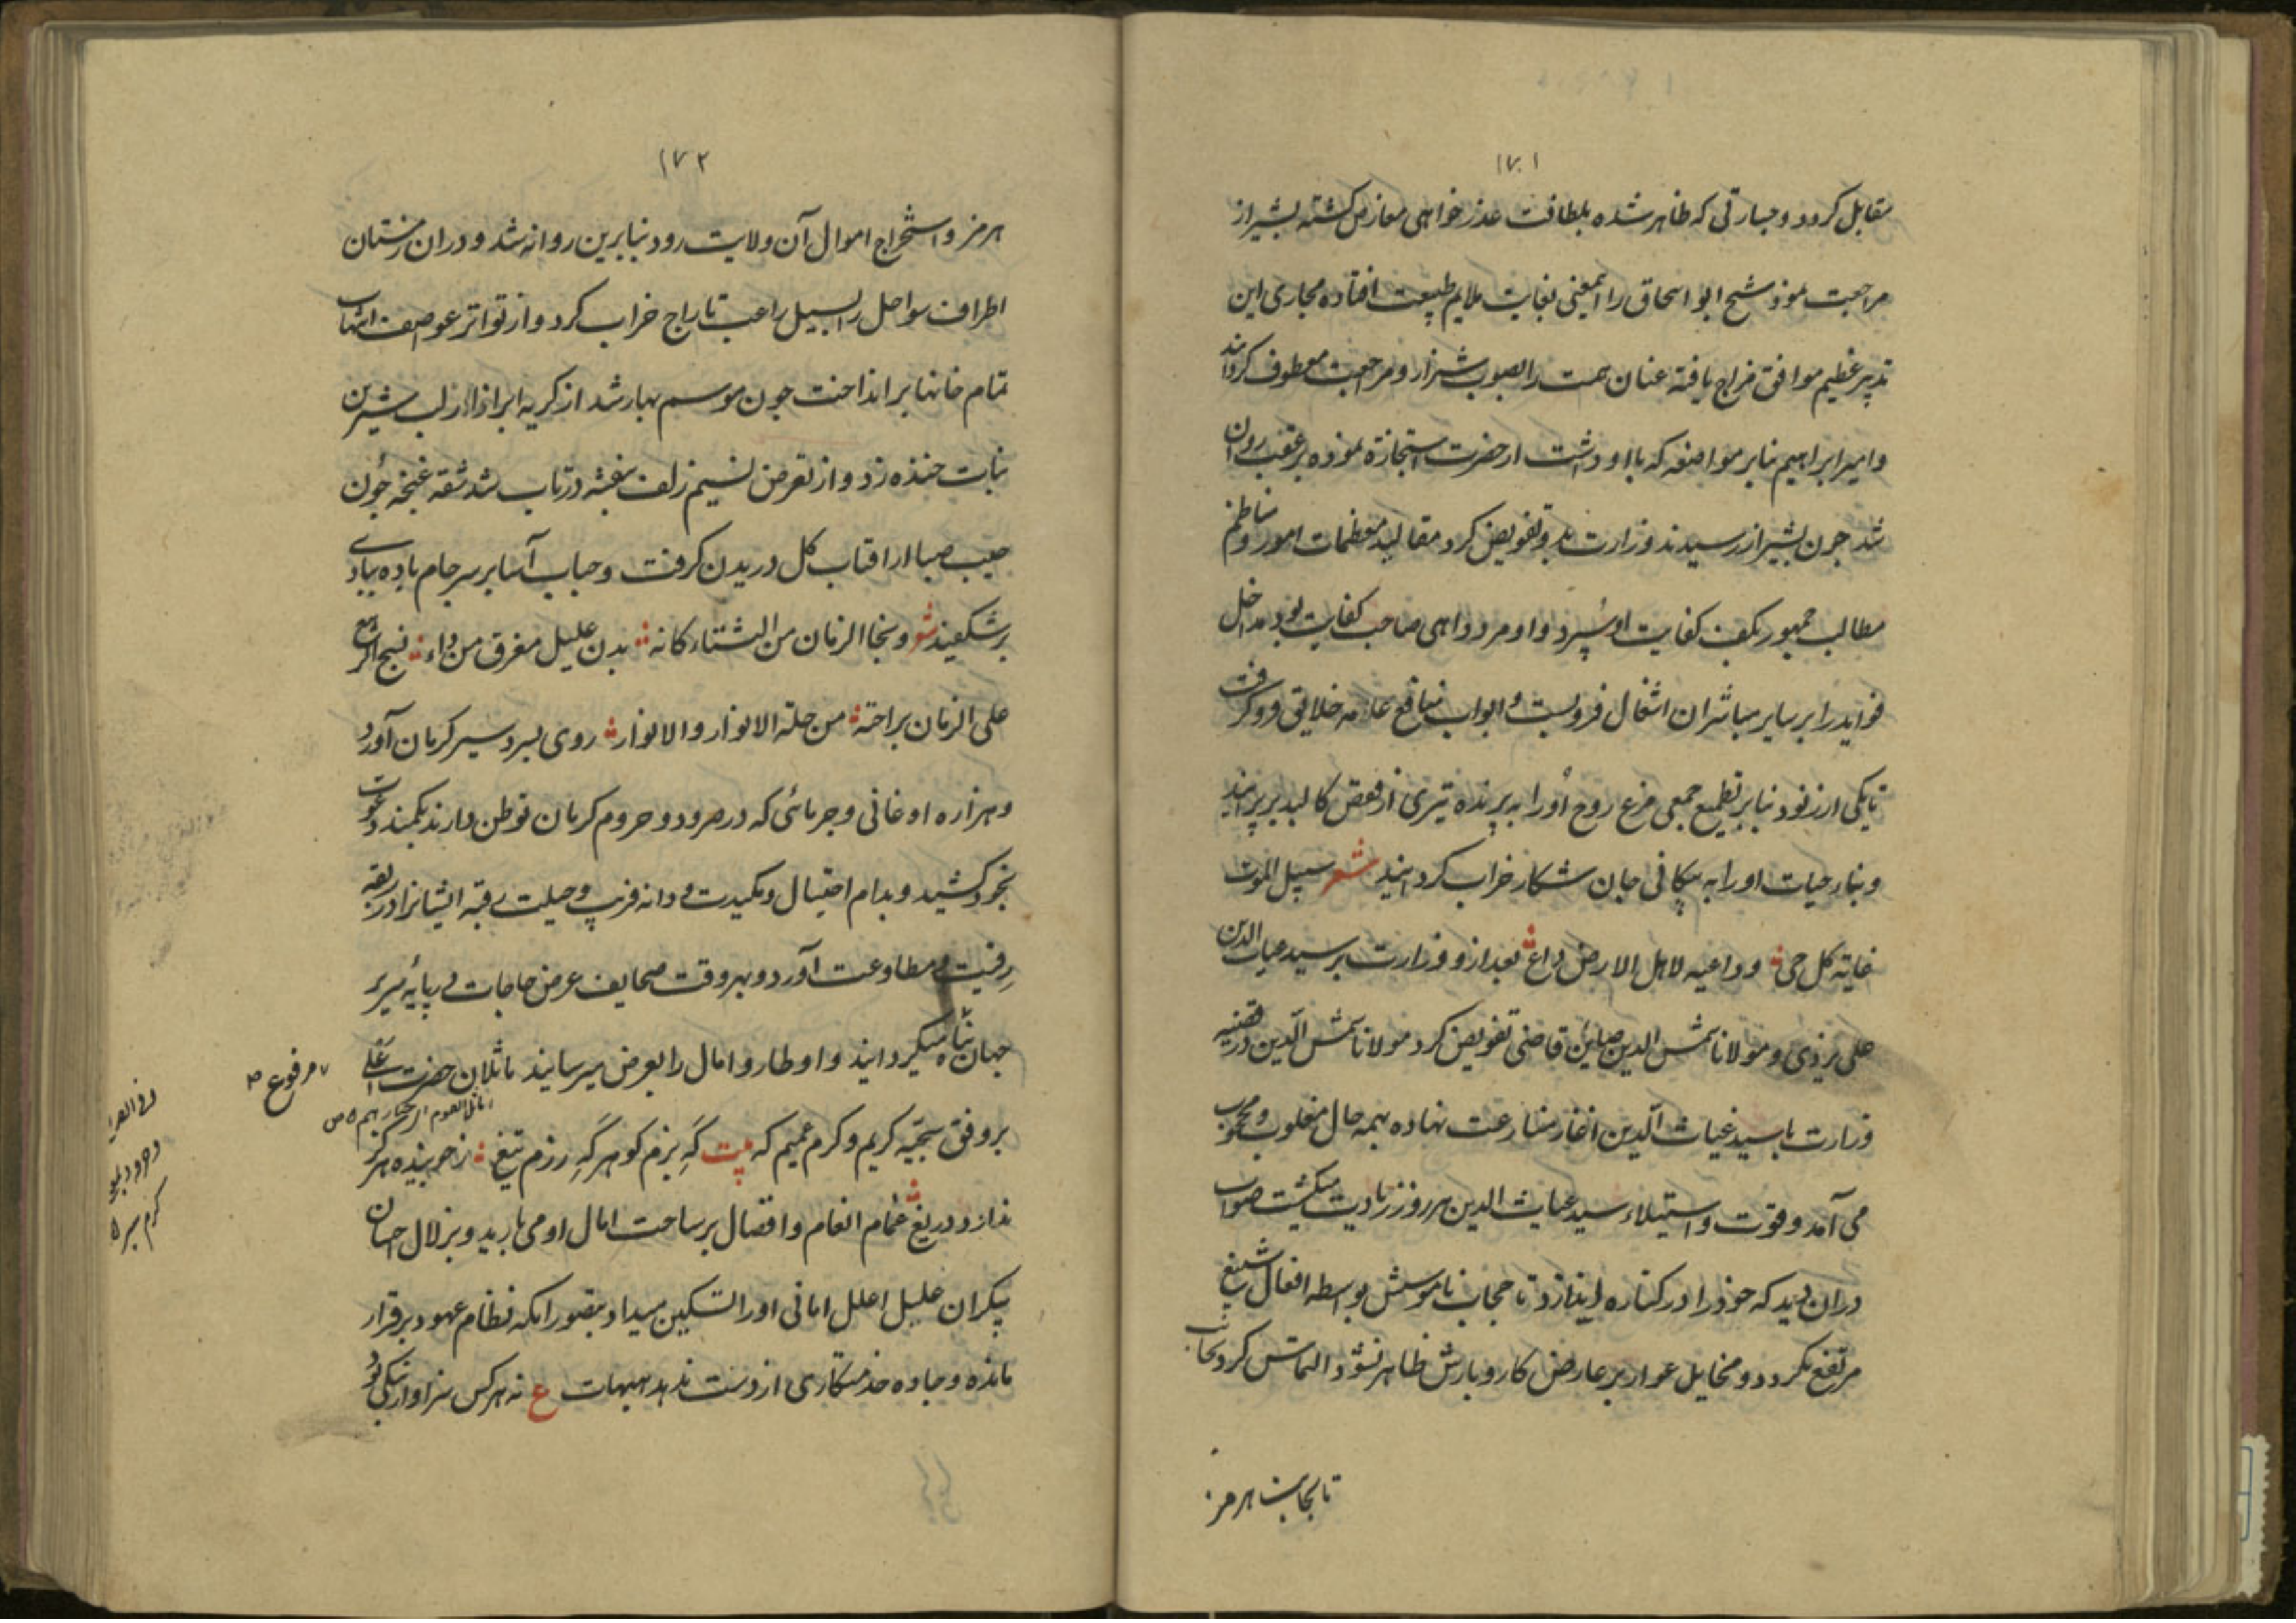 ١٧١
مقابل کردد و جسارتی که ظاهر شده بلطافت عذر خواهی معارض کشته بشیراز
مراجعت نمود شیخ ابو اسحاق را این معنی بغایت ملایم طبیعت افتاده مجاری این
تدبیر عظیم موافق مزاج یافته عنان همت را بصوب شیراز و مرجعت معطوف کردانید
و امیر ابراهیم بنابر مواضعه که با او داشت از حضرت استجازة نموده بر عقب روان
شد جون بشیراز رسیدند وزارت بدو تفویض کرد مقالید معظمات امور و مناظم
مطالب جمهور بکف کفایت او سپرد و او مرد داهی صاحب کفایت بود مداخل
فواید را بر سایر مباشران اشغال فرو بست و ابواب منافع عامه خلایق فرو کرفت
تا یکی از نود بنابر تطمیع جمعی مرغ روح او را به پرنده تیری از قفص کالبد بر پرانید
و بناء حیات او را به پیکانی جان شکار خراب کردانید شعر سبیل الموت
غایة کل حی و داعیه لاهل الارض داع بعد از و وزارت بر سید غیاث الدین
علی یزدی و مولانا شمس الدین صاین قاضی تفویض کرد مولانا شمس الدین در قضیه
وزارت با سید غیاث الدین اغاز منازعت نهاده بهمه حال مغلوب و محجوب
می آمد و قوت و استیلاء سید غیاث الدین هر روز زیادت میکشت صواب
دران دید که خود را در کناره اندازد تا حجاب ناموسش بواسطه افعال شنیع
مرتفع نکردد و مخایل عوار بر عارض کار و بارش ظاهر نشود التماس کرد تا بجانب
تا بجانب هرمز
١٧٢
هرمز و استخراج اموال آن ولایت رود بنابرین روانه شد و دران زمستان
اطراف سواحل را بسیل راعب تاراج خراب کرد و از تواتر عواصف التهاب
تمام خانها بر انداخت جون موسم بهار شد از کریه ابر ازار لب شیرین
نبات خنده زد و از تعرض نسیم زلف بنفشه در تاب شد شقه غنجه جون
جیب صبا از افتاب کل دریدن کرفت و حباب آسا بر سر جام باده بیادے
بر شکفید شعر و نجا الزمان من الشتاء کانه بدن علیل مفرق من داء نسج الربیع
علی الزمان براحة من حلة الانوار و الانوار روی ببردسیر کرمان آورد
و هزاره اوغانی و جرمائی که در صرود و جروم کرمان توطن دارند بکمند دعوت
بخود کشید و بدام احتیال و مکیدت و دانه فریب و حیلت رقبه ایشانرا در ربقه
رقیت و مطاوعت آورد و بهر وقت صحایف عرض حاجات بپایه سریر
جهان پناه میکردانید و اوطار و امال را بعرض میرسانید حضرت اعلی
بر وفق سجیه کریم و کرم عمیم که بیت که بزم کوهر که رزم تیغ ز خواهنده هرکز
ندارد دریغ غمام انعام و افضال بر ساحت امال او می بارید و بزلال احسان
بیکران غلیل اعلل امانی او را تسکین میداد بتصور انکه نظام عهود برقرار
مانده و جاده خدمتکاری از دست ندهد هیهات ع نه هرکس سزاوار نیکی بود
مرفوع